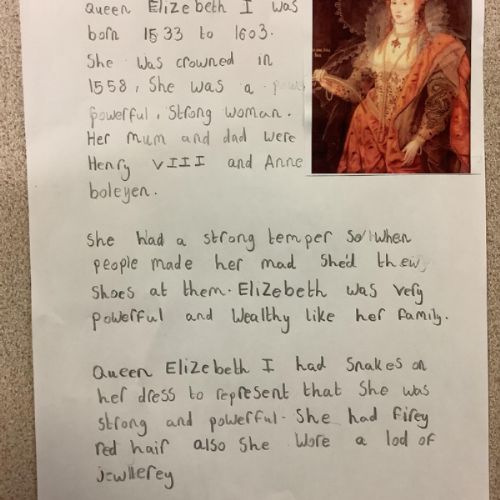 Queen Elizebeth I was
born 1533 to 1603.
She was crowned in
1558, She was a
powerful, Strong woman.
Her mum and dad were
Henry VIII and Anne
boleyen.
She had a strong temper So when
people made her mad She'd thew
Shoes at them. Elizebeth was very
powerful and wealthy like her family.
Queen Elizebeth I had Snakes on
her dress to represent that She was
strong and powerful. She had firey
red hair also She wore a lod of
jewllerey